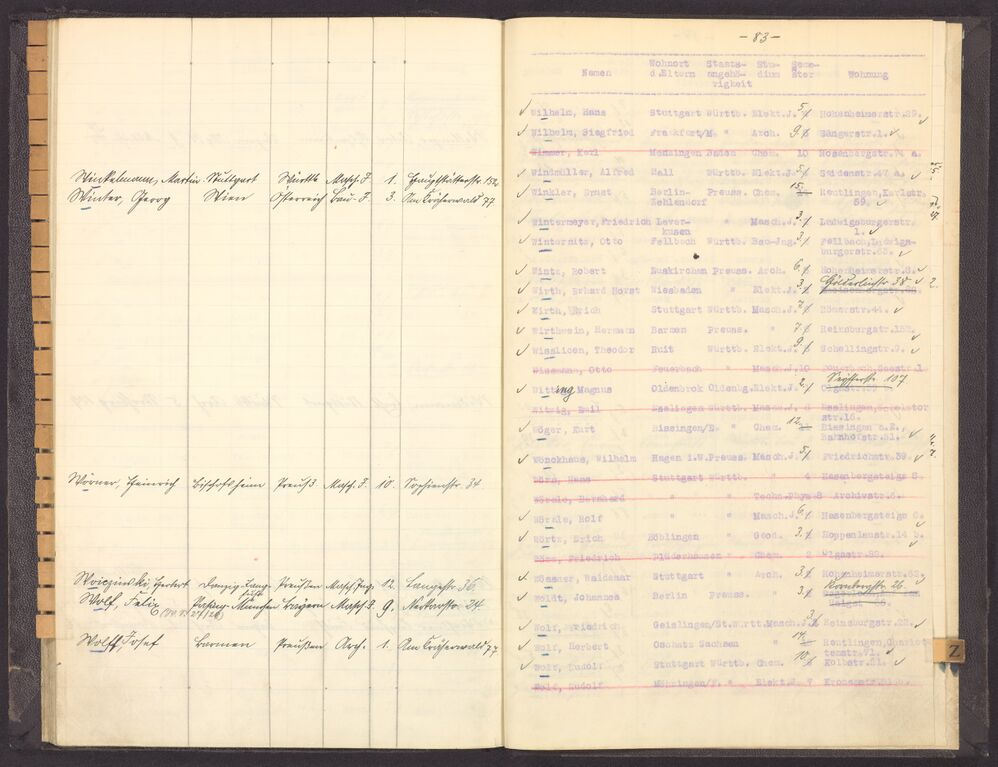 Winkelmann, Martin Stuttgart Württb. Masch.-I. 1. Hauptstätterstr. 152
Winter, Georg Wien Österreich Bau-I. 3. Am Kräherwald 77
Wörner, Heinrich Bischofsheim Preuß. Masch.-I. 10. Sophienstr. 34
Preußen Masch.Ing. 12. Langestr. 36
Wolf, Felix München Bayern Masch.I. 9. Neckarstr. 24
Wolff, Josef Barmen Preußen Arch. 1. Am Kräherwald 77
- 83 -
Wohnort Staats- Stu- Seme-
Namen d.Eltern angehö- dium ster Wohnung
rigkeit
Wilhelm, Hans Stuttgart Württb. Elekt.J. 5 Hohenheimerstr.29.
Wilhelm, Siegfried Frankfurt/M. " Arch. 9 Sängerstr.1.
Wimmer, Karl Menzingen Baden Chem. 10 Rosenbergstr.74 a.
Windmüller, Alfred Hall Württb. Elekt.J. 5 Seidenstr.47 a.
Winkler, Ernst Berlin- Preuss. Chem. 15. Reutlingen, Karlstr.
Zehlendorf 59.
Wintermeyer, Friedrich Lever- " Masch.J. 3. Ludwigsburgerstr.
kusen 1.
Winternitz, Otto Fellbach Württb. Bau-Jng. 3. Fellbach, Ludwigs-
burgerstr.63.
Wintz, Robert Euskirchen Preuss. Arch. 6 Hohenheimerstr.8.
Wirth, Erhard Horst Wiesbaden " Elekt.J. 3. Hölderlinstr. 38 2.
Wirth, Erich Stuttgart Württb. Masch.J. 7. Römerstr.44.
Wirthwein, Hermann Barmen Preuss. " 7. Reinsburgstr.152.
Wislicen, Theodor Ruit Württb. Elekt.J. 9. Schellingstr.9.
Wissmann, Otto Feuerbach " Masch.J. 10 Feuerbach, Seestr.1
Seyfferstr. 107
Witting Magnus Oldenbrok Oldenbg. Elekt.J. 2.
Witzig, Emil Esslingen Württb. Masch.J. 8 Esslingen,
str.16.
Wöger, Kurt Bissingen/E. " Chem. 12. Bissingen a.E.,
Bahnhofstr.51.
Wönckhaus, Wilhelm Hagen i.W. Preuss. Masch.J. 5 Friedrichstr.39.
Wörn, Hans Stuttgart Württb. " 4 Hasenbergsteige 8.
Wörnle, Bernhard " " Techn.Phys. 8 Archivstr.
Wörnle, Rolf " " Masch.J. 6 Hasenbergsteige 8.
Wörtz, Erich Böblingen " Geod. 3. Hoppenlaustr.14 b.
Friedrich Plüderhausen " Chem. 2 Olgastr.
Wössner, Waldemar Stuttgart " Arch. 3. Hohenheimerstr.52.
Woldt, Johannes Berlin Preuss. " 3. Kornbergstr. 26
Wolf, Friedrich Geislingen/St. Württ. Masch.J. 3. Reinsburgstr.22.
Wolf, Herbert Oschatz Sachsen " Reutlingen, Charlot
tenstr.71.
Wolf, Rudolf Stuttgart Württb. Chem. 10. Kolbstr.
Wolf, Rudolf Möhringen/F. " Elekt.J. 7 Kronenstr.
Z